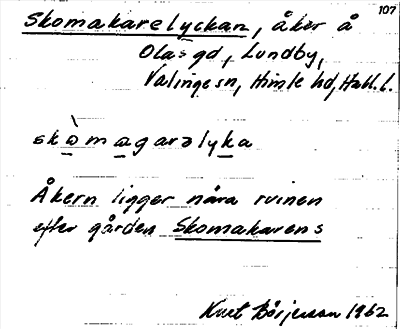 107
Skomakarelyckan, åker å
Olasgd, Lundby,
Valinge sn, Himle hd, Hall. l.
skòmagarəlyka
Åkern ligger nära ruinen
efter gården Skomakarens
Kurt Börjesson 1962